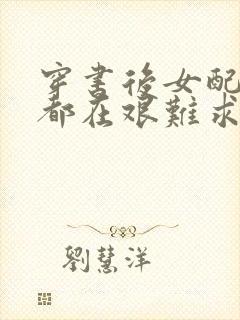 穿書後女配
都在艱難求
劉慧洋